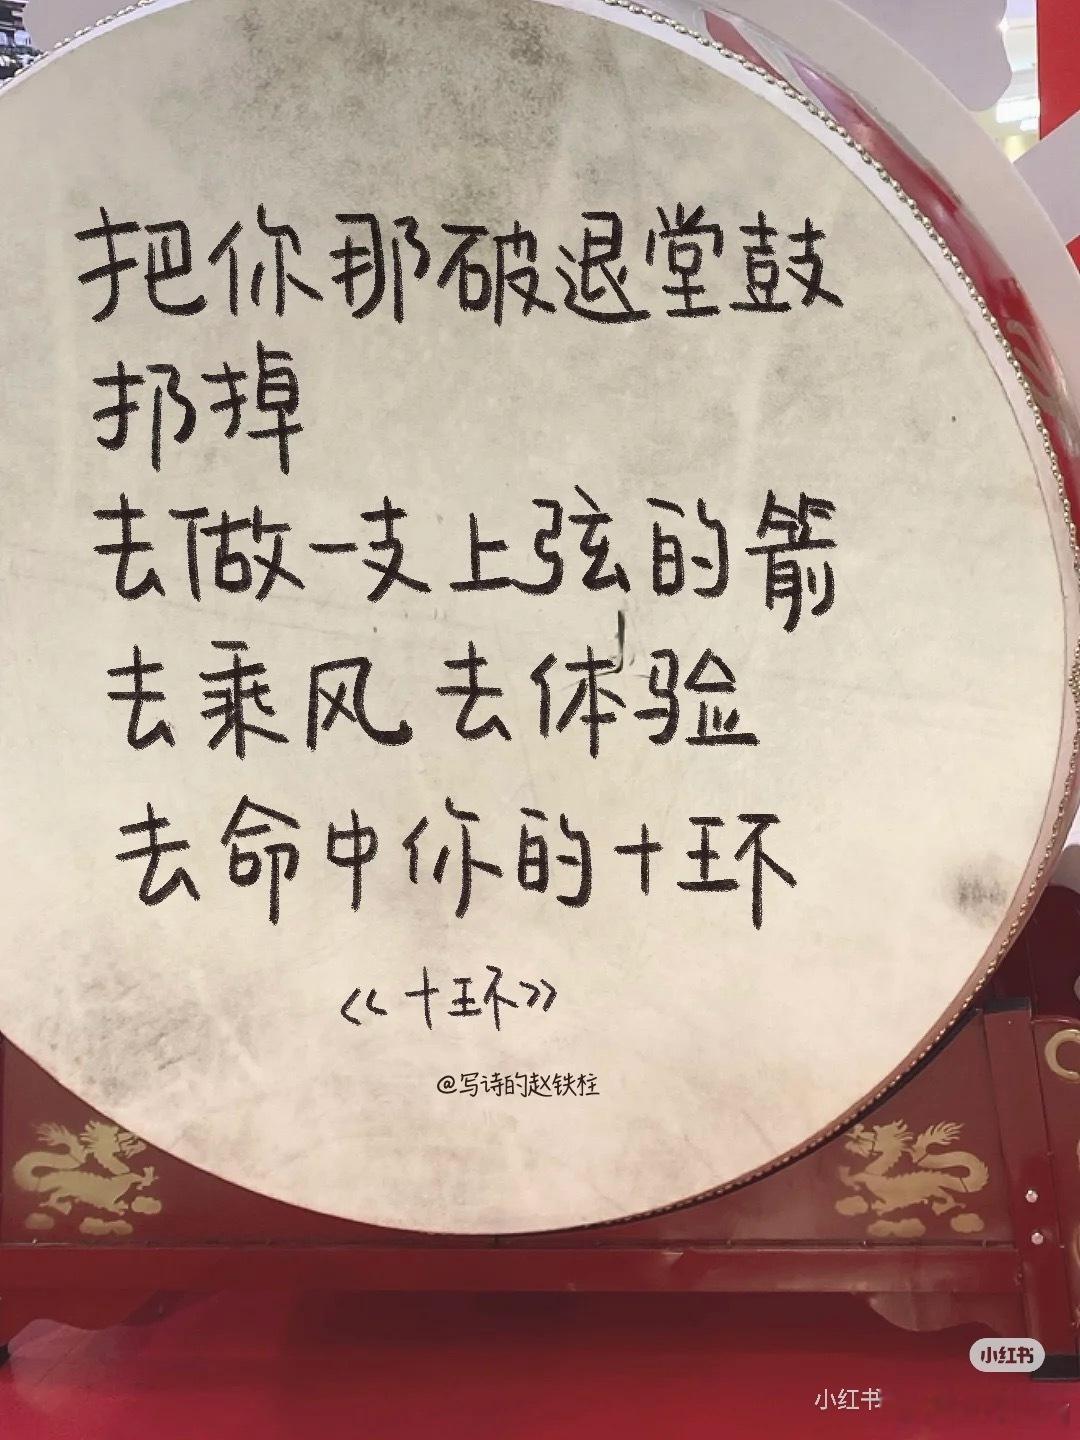 把你那破退堂鼓
扔掉
去做一支上弦的箭
去乘风 去体验
去命中你的十环
《十环》
@写诗的赵铁柱
小红书
小红书